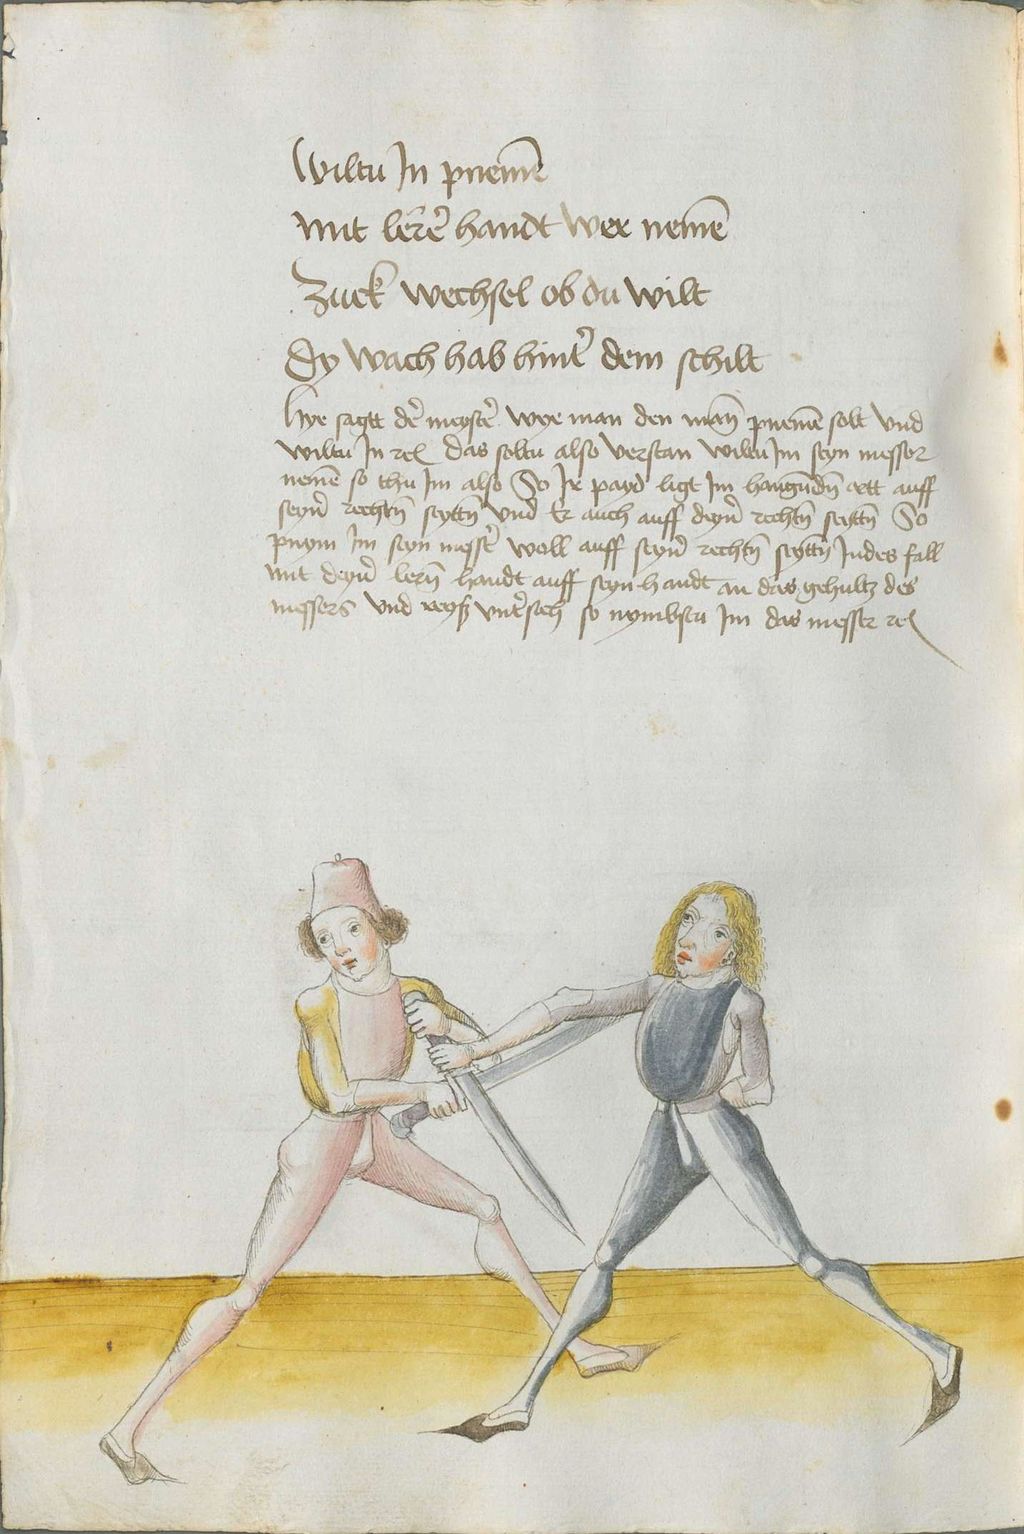 Wiltu In pnemē
mit lere᷑ handt wer nemē
Zuck wechsel ob du wilt
Dy wach hab hint᷑ dem schilt
Hye sagtt de᷑ meyste᷑ wye man den mañ pnemē solt vnd
wiltu In rc̃ das soltu also verstan wiltu Im seyn messer
nemē so thu Im also So Ir payd ligt Im hangūdñ ortt auff
seyn᷑ rechtñ seyttñ vnd Er auch auff deyn᷑ rechtñ seyttñ So
pnym Im seyn messe᷑ woll auff seyn᷑ rechtñ seyttñ Indes fall
mit deyn᷑ lerñ handt auff seyn handt an das gehultz des
messers vnd reyß vnt᷑sich so nymbstu Im das messer rc̃